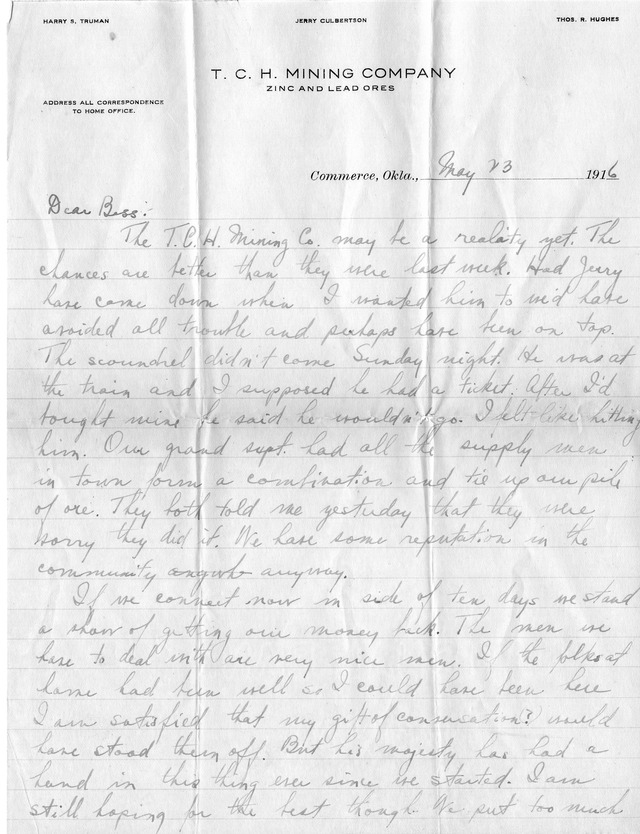 HARRY S. TRUMAN JERRY CULBERTSON THOS. R. HUGHES
T. C. H. MINING COMPANY
ZINC AND LEAD ORES
ADDRESS ALL CORRESPONDENCE
TO HOME OFFICE.
Commerce, Okla., May 23 1916
Dear Bess:
The T.C.H. Mining Co. may be a reality yet. The
chances are better than they were last week. Had Jerry
have come down when I wanted him to we'd have
avoided all trouble and perhaps have been on top.
The scoundrel didn't come Sunday night. He was at
the train and I supposed he had a ticket. After I'd
bought mine he said he wouldn't go. I felt like hitting
him. Our grand supt. had all the supply men
in town form a combination and tie up our pile
of ore. They both told me yesterday that they were
sorry they did it. We have some reputation in the
community anyway.
If we connect now in side of ten days we stand
a show of getting our money back. The men we
have to deal with are very nice men. If the folks at
home had been well so I could have been here
I am satisfied that my gift of conversation(?) would
have stood them off. But his majesty has had a
hand in this thing ever since we started. I am
still hoping for the best though. We put too much